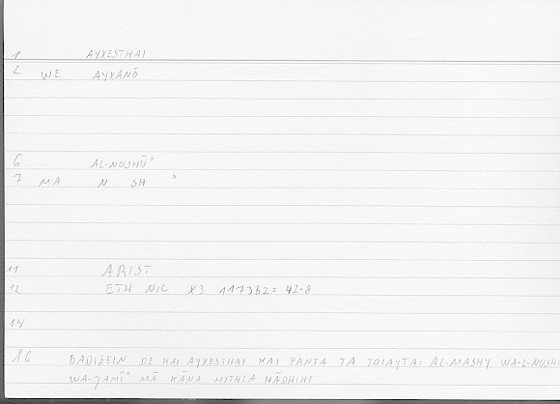 1 AYXESTHAI
2 WE AYXANŌ
6 AL-NUSHŪʾ
7 MA N SH ʾ
11 ARIST
12 ETH NIC X3 1173b2 = 42.8
14
16 BADIZEIN DE KAI AYXESTHAI KAI PANTA TA TOIAYTA: AL-MASHY WA-L-NUSHŪ
WA-JAMĪʿ MĀ KĀNA MITHLA HĀDHIHI